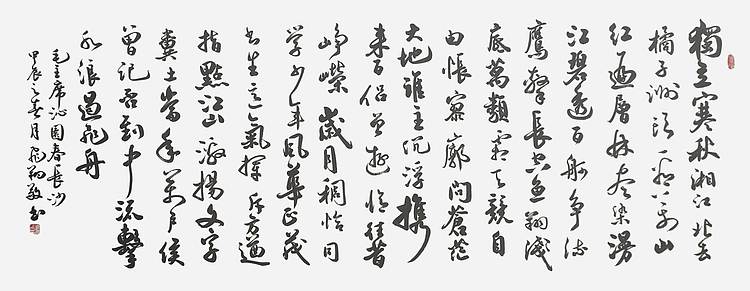 獨立寒秋湘江北去
橘子洲頭看萬山
紅遍層林盡染漫
江碧透百舸爭流
鷹擊長空魚翔淺
底萬類霜天競自
由悵寥廓問蒼茫
大地誰主沉浮攜
來百侶曾遊憶往昔
崢嶸歲月稠恰同
學少年風華正茂
書生意氣揮斥方遒
指點江山激揚文字
糞土當年萬戶侯
曾記否到中流擊
水浪遏飛舟
毛主席沁園春長沙
甲辰之春月飛翔敬書